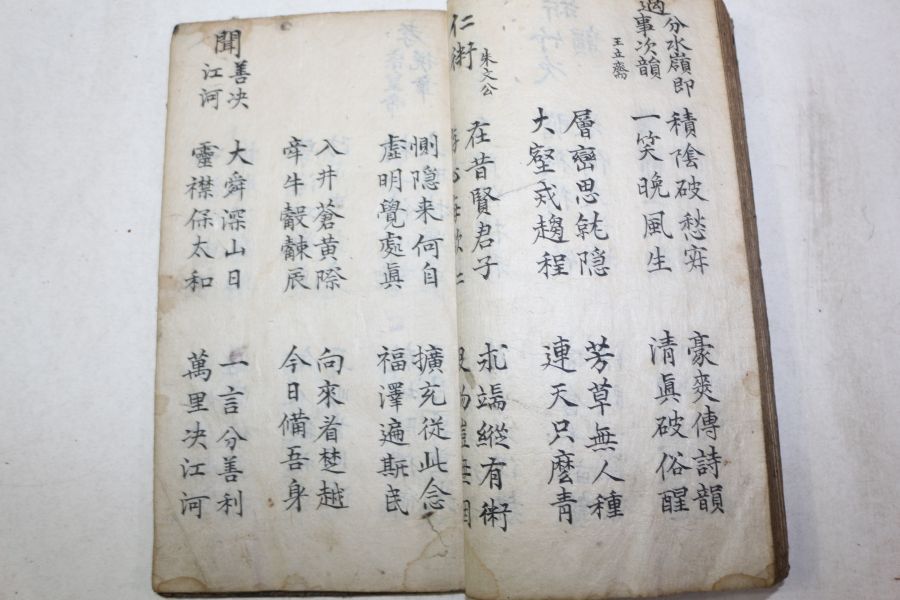 過分水嶺即
事次韻
王立齋
積陰破愁寂 豪爽傳詩韻
一笑晚風生 清眞破俗醒
層巒思就隠 芳草無人種
大壑戒趨程 連天只麽青
仁術
朱文公
在昔賢君子 求端縱有術
存心每欲仁 及物豈無因
惻隠来何自 擴充從此念
虛明覺處眞 福澤遍斯民
入井蒼黃際 向來看楚越
牽牛觳觫辰 今日備吾身
聞
善决
江河
大舜深山日 一言分善利
靈襟保太和 萬里决江河